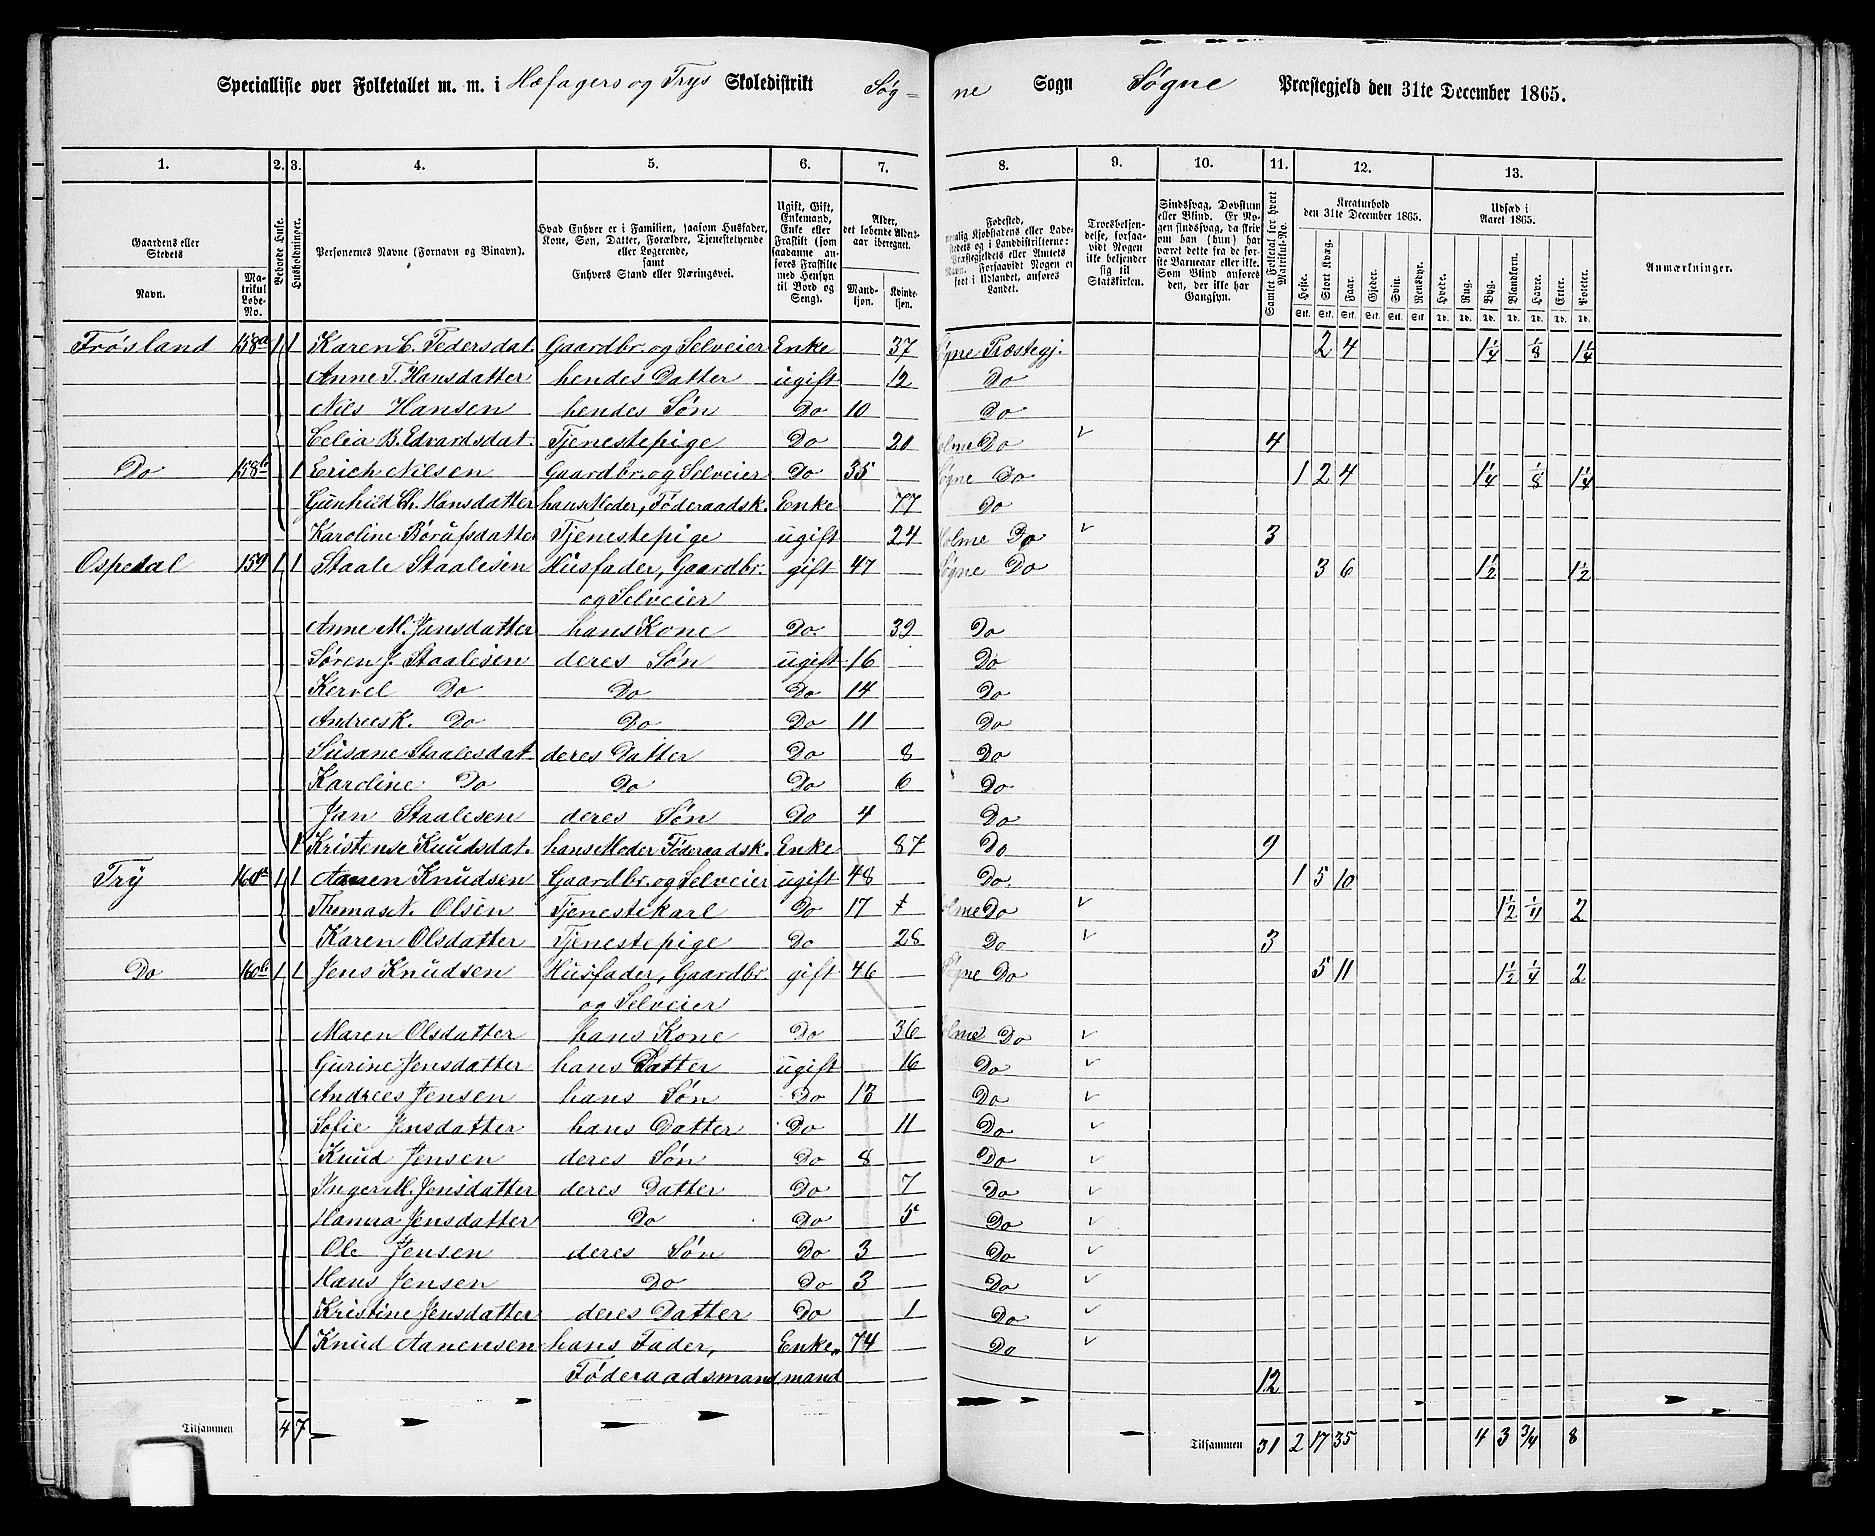 Specialliste over Folketallet m. m. i Hæfagers og Trys Skoledistrikt Søgne Sogn Søgne Præstegjeld den 31te December 1865.
1. 2. 3. 4. 5. 6. 7. 8. 9. 10. 11. 12. 13.
Gaardens eller Stedets Navn. Matrikul Løbe-No. Beboede Huse. Husholdninger. Personernes Navne (Fornavn og Binavn). Hvad Enhver er i Familien, saasom Husfader, Kone, Søn, Datter, Forældre, Tjenestetyende eller Logerende, samt Enhvers Stand eller Næringsvei. Ugift, Gift, Enkemand, Enke eller Fraskilt (som saadanne anføres Fraskilte med Hensyn til Bord og Seng). Alder, det løbende Alders-aar iberegnet. Mandkjøn. Kvindekjøn. Fødested, Troesbekjendelse, forsaavidt Nogen ikke bekjender sig til Statskirken. Sindssvag, Døvstum eller Blind. Samlet Folketal for hvert Matrikul-No. Kreaturhold den 31te December 1865. Heste. Stort Kvæg. Faar. Gjeder. Svin. Rensdyr. Udsæd i Aaret 1865. Hvede. Rug. Byg. Blandkorn. Havre. Erter. Poteter. Anmærkninger.
Frøsland 158a 1 1 Karen C. Pedersdat. Gaardbr. og Selveier Enke 37 Søgne Præstegj. 2 4 1¼ ⅛ 1¼
Anne T. Hansdatter hendes Datter ugift 12 Do
Nils Hansen hendes Søn Do 10 Do
Celia B. Edvardsdat. Tjenestepige Do 20 Holme Do 4
Do 158b 1 Erich Nilsen Gaardbr. og Selveier Do 35 Søgne Do 1 2 4 1¼ ⅛ 1¼
Gunhild Ch. Hansdatter hans Moder, Føderaadsk. Enke 77 Do
Karoline Tjenestepige ugift 24 Holme Do 3
Ospedal 159 1 1 Staale Staalesen Husfader, Gaardbr. gift 47 Søgne Do 3 6 1½ 1½
og Selveier
Anne M. Jansdatter hans Kone Do 39 Do
Søren J. Staalesen deres Søn ugift 16 Do
Kervel Do Do Do 14 Do
Andreas K. Do Do Do 11 Do
Susane Staalesdat. deres Datter Do 8 Do
Karoline Do Do Do 6 Do
Jan Staalesen deres Søn Do 4 Do
1 Kristense Knudsdat. hans Moder Føderaadsk. Enke 87 Do 9
Try 160a 1 1 Aanen Knudsen Gaardbr. og Selveier ugift 48 Do 1 5 10
Thomas N. Olsen Tjenestekarl Do 17 Holme Do 1½ ¼ 2
Karen Olsdatter Tjenestepige Do 28 Do 3
Do 160b 1 1 Jens Knudsen Husfader, Gaardbr. gift 46 Søgne Do 5 11 1½ ¼ 2
og Selveier
Maren Olsdatter hans Kone Do 36 Holme Do
Gurine Jensdatter hans Datter ugift 16 Do
Andreas Jensen hans Søn Do 13 Do
Sofie Jensdatter hans Datter Do 11 Do
Knud Jensen deres Søn Do 8 Do
Inger M. Jensdatter deres Datter Do 7 Do
Hanna Jensdatter Do Do 5 Do
Ole Jensen deres Søn Do 3 Do
Hans Jensen Do Do 3 Do
Kristine Jensdatter deres Datter Do 1 Do
1 Knud Aanensen hans Fader, Enke- 74 Do
Føderaadsmand mand 12
Tilsammen 4 7 Tilsammen 31 2 17 35 4 3 ¾ 8